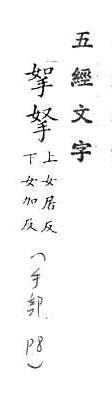 五經文字
挐拏
上女居反
下女加反
(手部. P8)